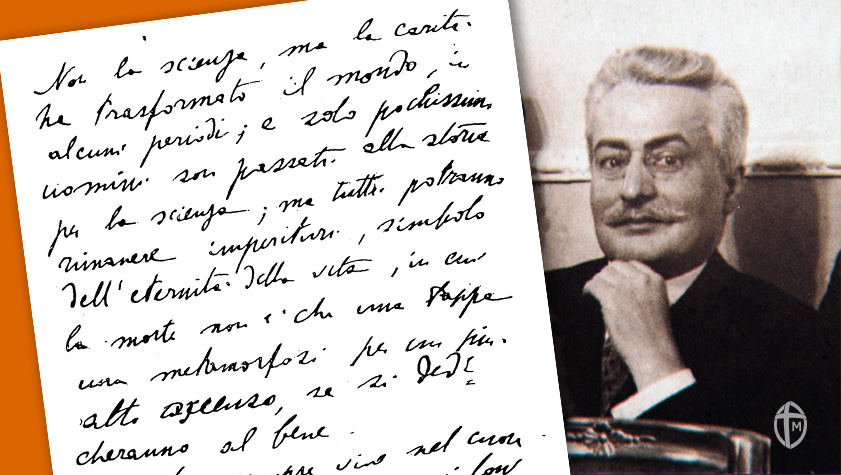 Non la scienza, ma la carità
ha trasformato il mondo, in
alcuni periodi; e solo pochissimi
uomini son passati alla storia
per la scienza; ma tutti potranno
rimanere imperituri, simbolo
dell'eternità della vita, in cui
la morte non è che una tappa
una metamorfosi per un più
alto ascenso, se si dedi
cheranno al bene.
vivo nel cuore
M